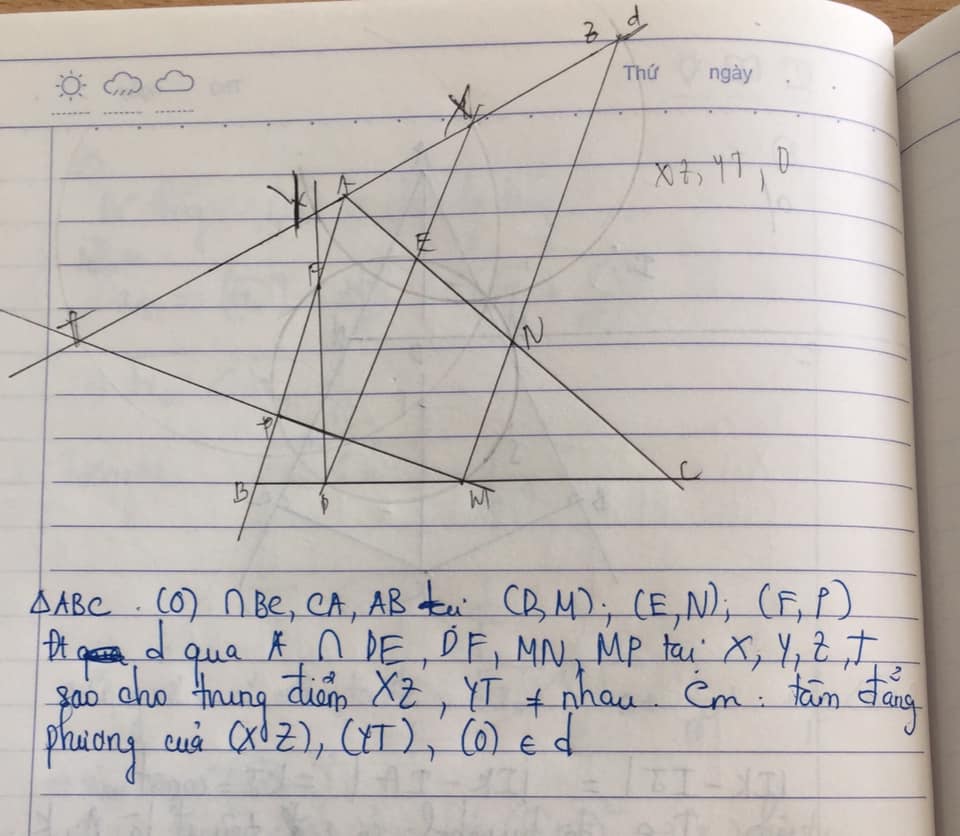 Z d
Thứ ngày
X
XZ, YT, O
Y A
E
F
T
N
P
B D M C
ΔABC. (O) ∩ BC, CA, AB tại (D, M); (E, N); (F, P)
Đt d qua A ∩ DE, DF, MN, MP tại X, Y, Z, T
sao cho trung điểm XZ, YT ≠ nhau. Cm: tâm đẳng
phương của (XZ), (YT), (O) ∈ d